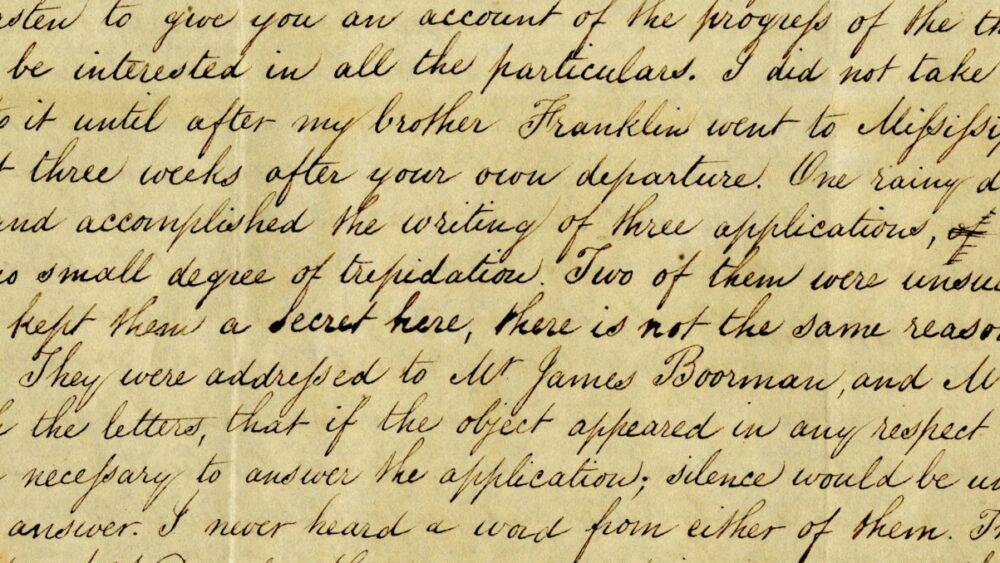 sten to give you an account of the progreſs of the th
be interested in all the particulars. I did not take
to it until after my brother Franklin went to Miſsiſsip
t three weeks after your own departure. One rainy d
and accomplished the writing of three applications, of
no small degree of trepidation. Two of them were unsuc
kept them a secret here, there is not the same reaso
They were addreſsed to Mr James Boorman, and M
the letters, that if the object appeared in any respect
neceſsary to answer the application; silence would be un
answer. I never heard a word from either of them. Th